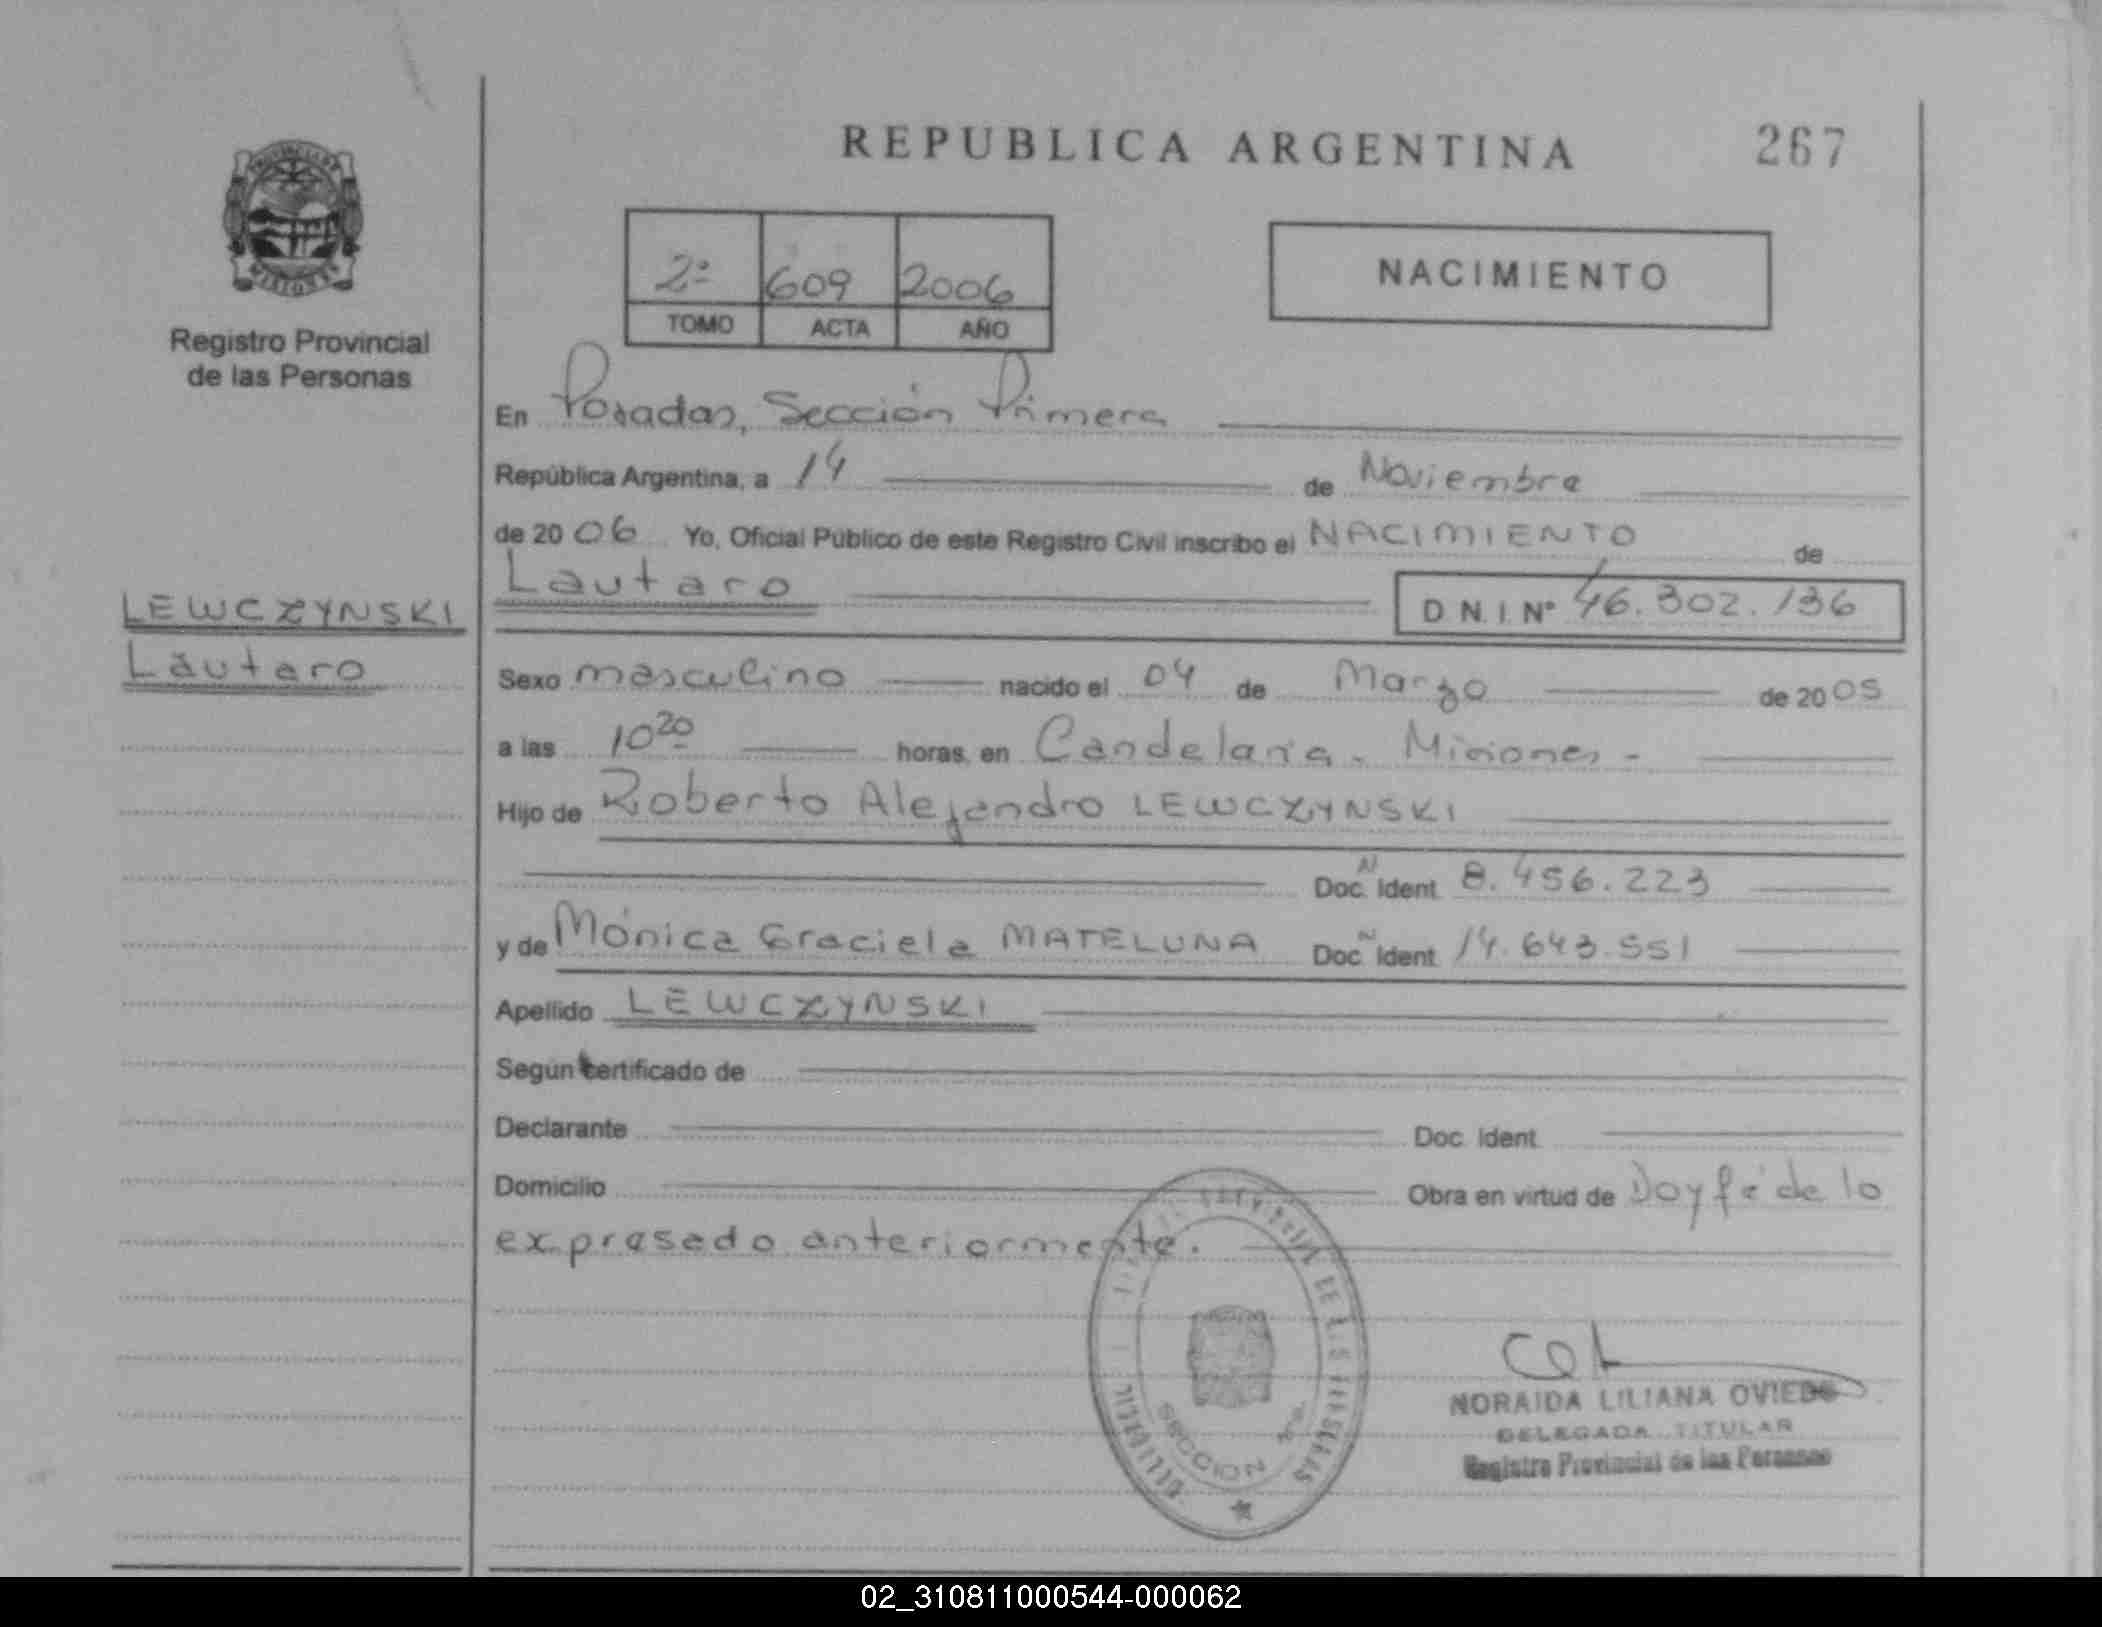 REPUBLICA ARGENTINA
267
PROVINCIA DE
MISIONES
Registro Provincial
de las Personas
2º 609 2006
TOMO ACTA AÑO
NACIMIENTO
En Posadas, Sección Primera
República Argentina, a 14 de Noviembre
de 2006 Yo, Oficial Público de este Registro Civil inscribo el NACIMIENTO de
Lautaro
D.N.I. Nº 46.302.136
LEWCZYNSKI
Lautaro
Sexo masculino nacido el 04 de Marzo de 2005
a las 10 20 horas, en Candelaria - Misiones -
Hijo de Roberto Alejandro LEWCZYNSKI
Doc. N Ident 8.456.223
y de Mónica Graciela MATELUNA Doc. N Ident 14.643.551
Apellido LEWCZYNSKI
Según certificado de
Declarante Doc. Ident
Domicilio Obra en virtud de Doy fé de lo
expresado anteriormente.
SECCION
NORAIDA LILIANA OVIEDO
DELEGADA TITULAR
Registro Provincial de las Personas
02_310811000544-000062